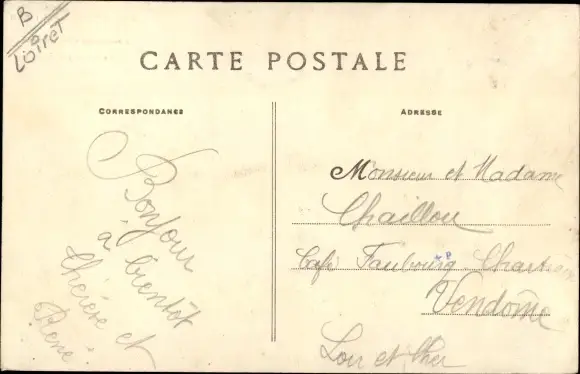 B
Loiret
CARTE POSTALE
CORRESPONDANCE
Bonjour
à bientôt
Thérèse et
René
ADRESSE
Monsieur et Madame
Chaillou
Café Faubourg Chartrain
Vendôme
Loir et Cher